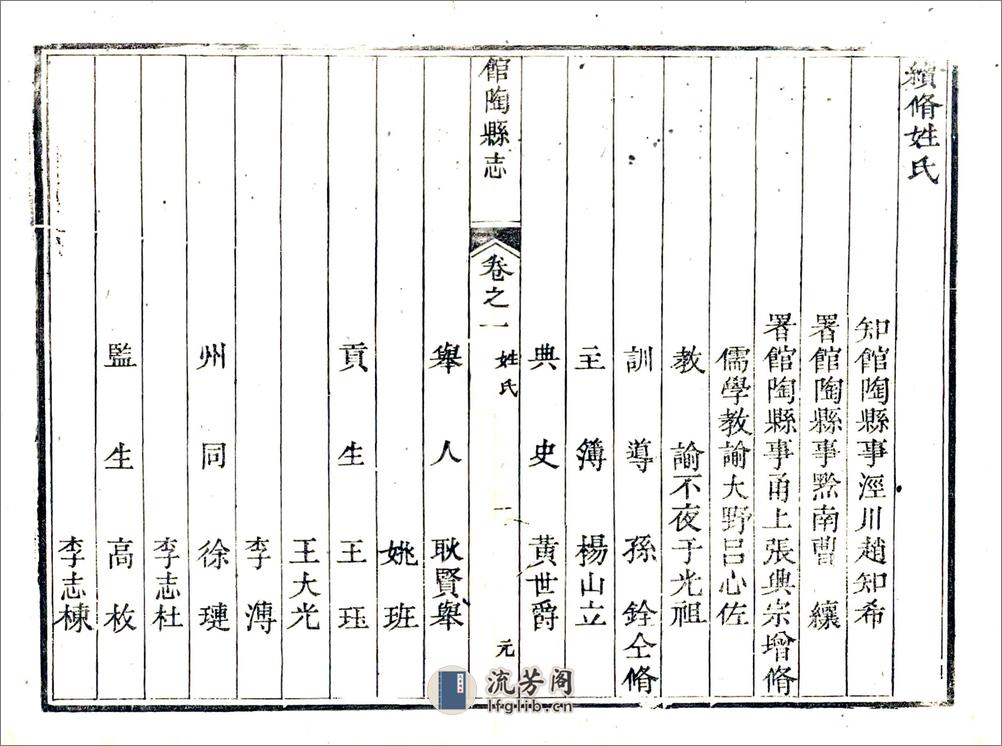 續脩姓氏
知館陶縣事涇川趙知希
署館陶縣事黔南曹纕
署館陶縣事甬上張興宗增脩
儒學教諭大野呂心佐
教諭不夜于光祖
訓導孫銓仝脩
主簿楊山立
典史黃世爵
館陶縣志
卷之一
姓氏
一
元
舉人耿賢舉
姚班
貢生王珏
王大光
李溥
州同徐璉
李志杜
監生高枚
李志棟
流芳阁
lfglib.cn